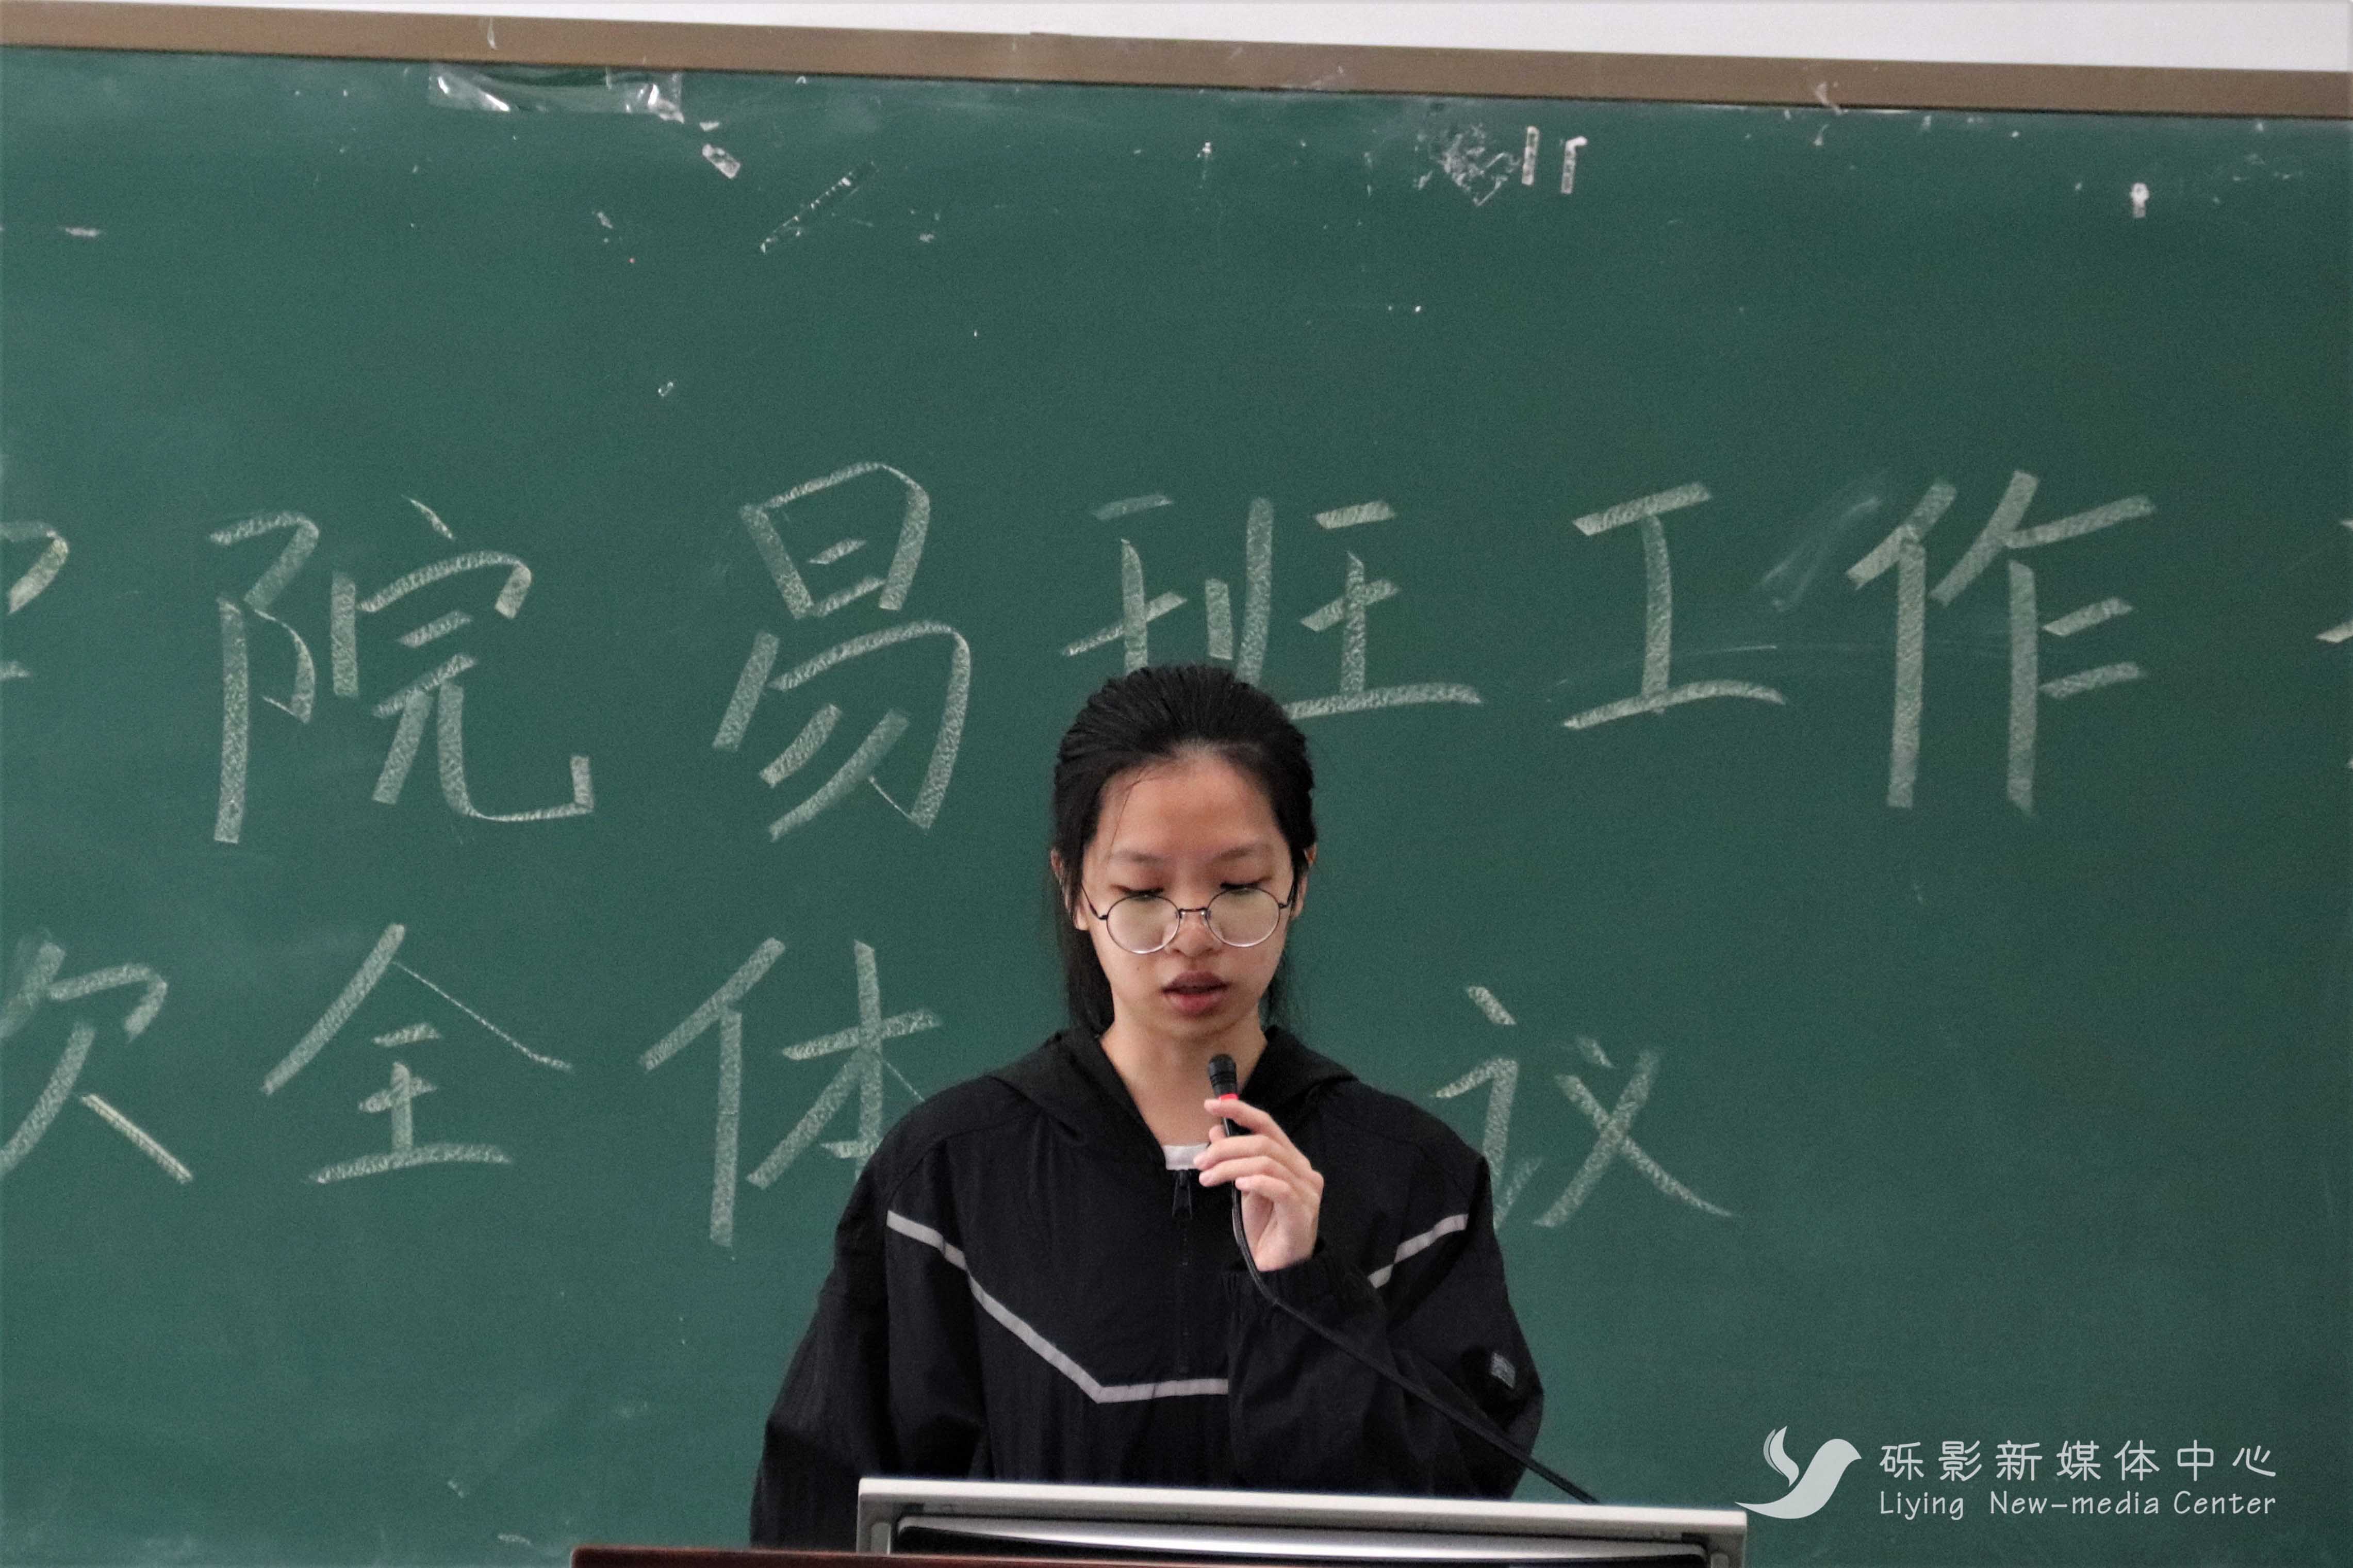 院易班工作
次全体议
砾影新媒体中心
Liying New-media Center